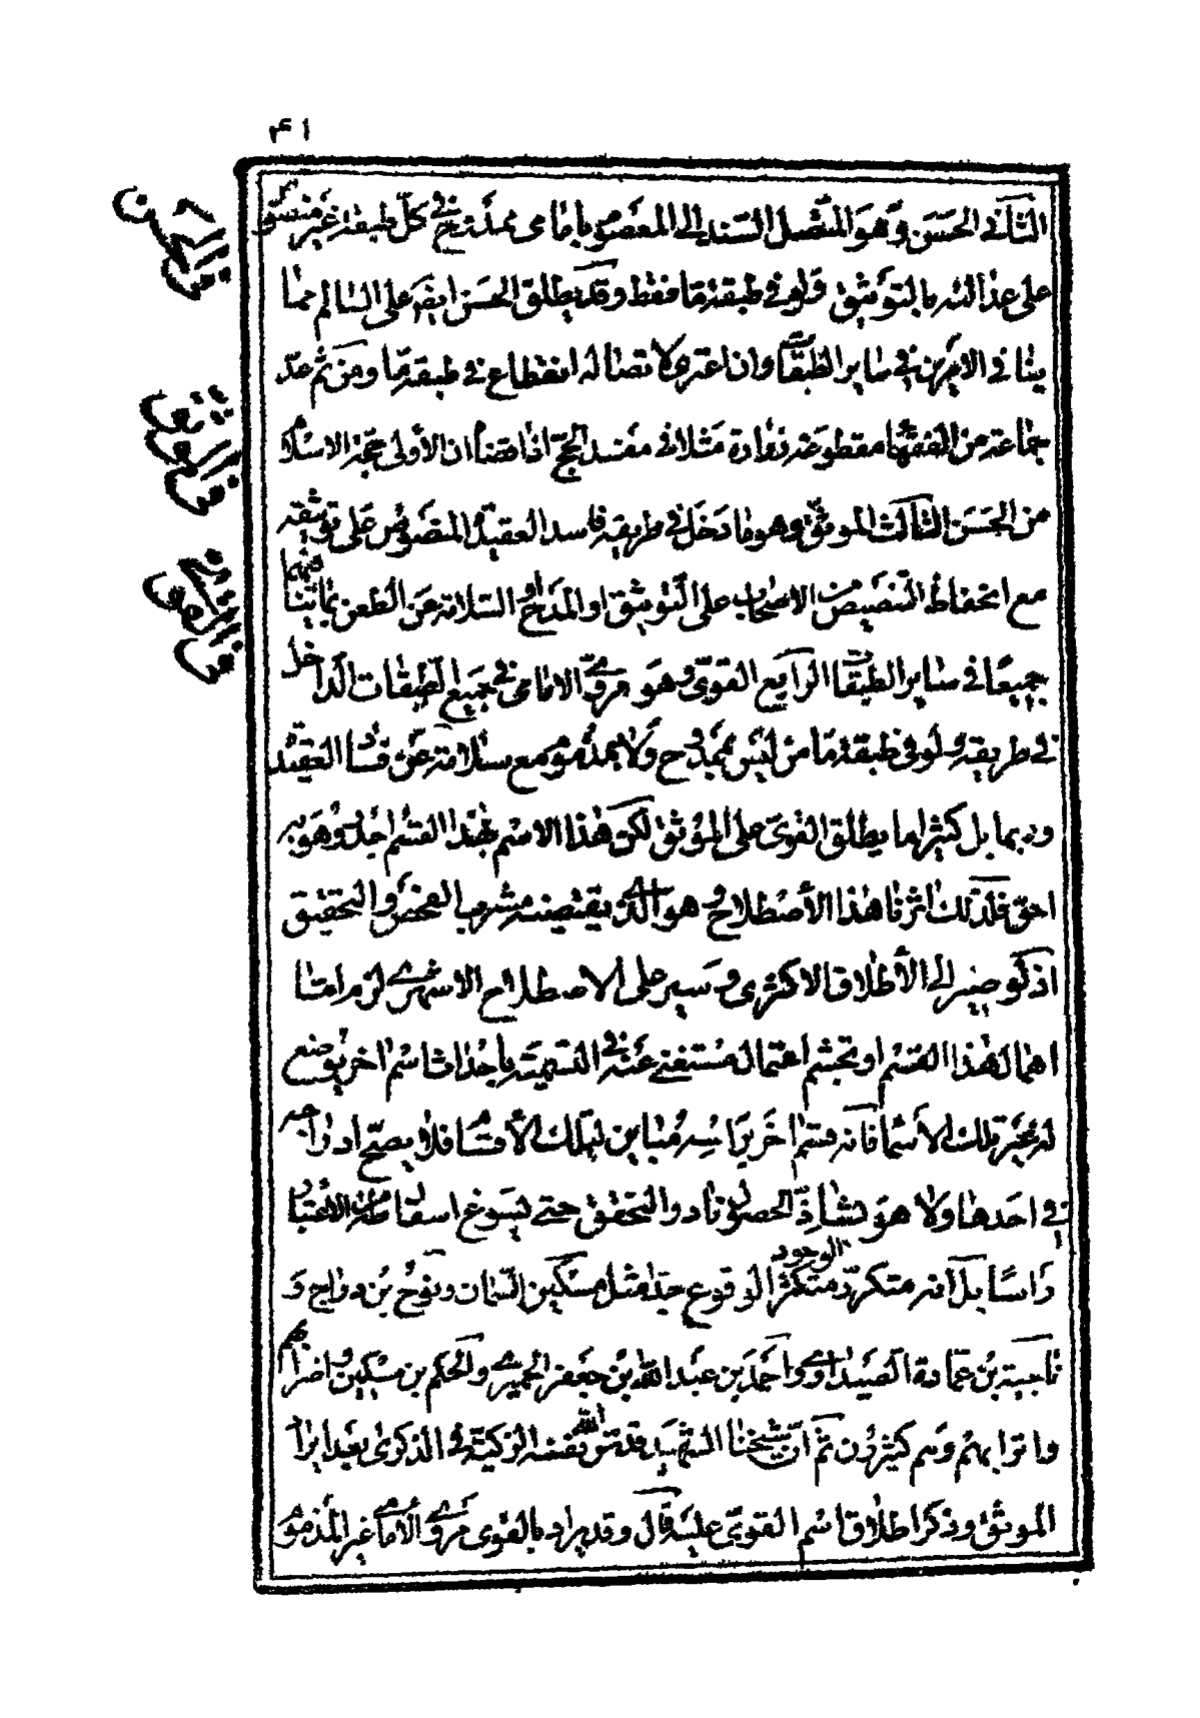 ٤١
الثاني الحسن وهو المتصل السند الى المعصوم بامامى ممدوح في كل طبقة غير منصوص
على عدالته بالتوثيق ولو في طبقة ما فقط وقد يطلق الحسن ايضا على السالم مما
ينافي الامرين في ساير الطبقات وان اعترى لاتصاله انقطاع في طبقة ما ومن ثم عد
جماعة من الفقهاء مقطوعة زرارة مثلا في مفسد الحج اذا قضا ان الأولى حجة الاسلام
من الحسن الثالث الموثق وهو ما دخل في طريقه فاسد العقيدة المنصوص على توثيقه
مع انحفاظ التنصيص من الاصحاب على التوثيق او المدح او السلامة عن الطعن بما ينافيهما
جميعا في ساير الطبقات الرابع القوي وهو مروي الامامى في جميع الطبقات الداخل
في طريقه ولو في طبقة ما من ليس بممدوح ولا بمذموم مع سلامته عن فساد العقيدة
وربما بل كثيرا ما يطلق القوى على الموثق لكن هذا الاسم بهذا القسم اجدر وهو به
احق فلذلك اثرنا هذا الأصطلاح وهو الذي يقتضيه مشرب الفحص والتحقيق
اذ لو صير الى الأطلاق الاكثرى وسير على الاصطلاح الاشهري لزم اما
اهمال هذا القسم او تجشم اعتمال مستغنى عنه في التسمية باحداث اسم اخر يوضع
له غير تلك الاسماء فانه قسم اخر براسه مباين لتلك الأقسام فلا يصح ادراجه
في احدها ولا هو بشاذ الحصول نادر التحقق حتى يسوغ اسقاطه من الاعتبار
راسا بل انه متكرر متكثر الوجود الوقوع جدا مثل مسكين السمان ونوح بن دراج و
ناجية بن عمارة الصيداوي واحمد بن عبد الله بن جعفر الحميري والحكم بن مسكين واضرابهم
واترابهم وهم كثيرون ثم ان شيخنا الشهيد قدس الله نفسه الزكية في الذكرى بعد ايراد
الموثق وذكر اطلاق اسم القوي عليه قال وقد يراد بالقوى مروي الأمامي غير المذموم
في الحسن
في الموثق